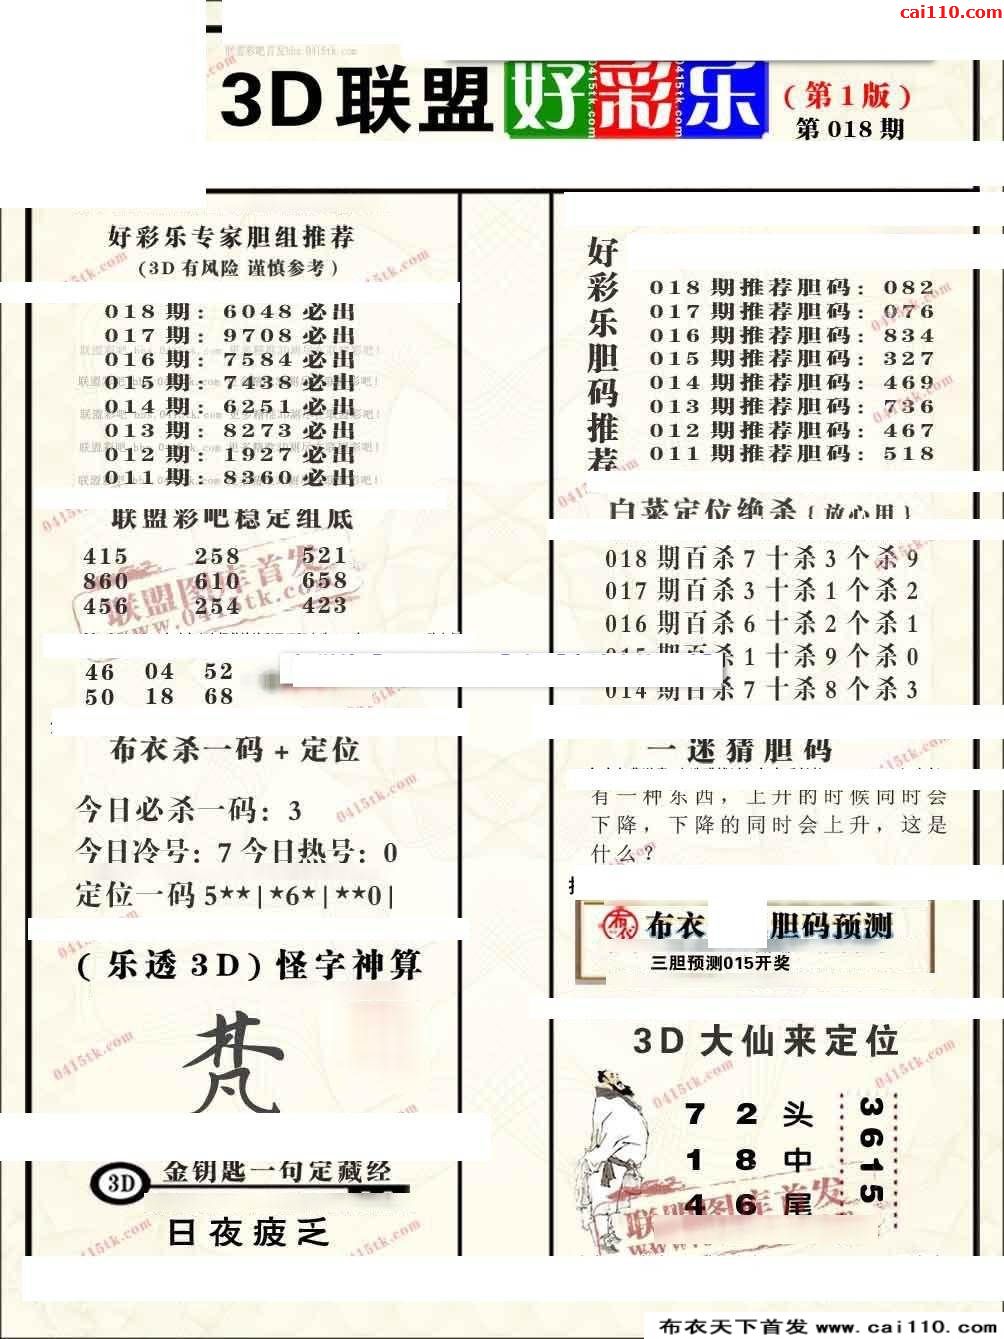 cai110.com
3D联盟 好彩乐 (第1版)
第018期
好彩乐专家胆组推荐
(3D有风险 谨慎参考)
018期: 6048必出
017期: 9708必出
016期: 7584必出
015期: 7438必出
014期: 6251必出
013期: 8273必出
012期: 1927必出
011期: 8360必出
联盟彩吧稳定组底
415 258 521
860 610 658
456 254 423
联盟图库首发
www.0415tk.com
46 04 52
50 18 68
布衣杀一码+定位
今日必杀一码: 3
今日冷号: 7 今日热号: 0
定位一码 5**|*6*|**0|
(乐透3D) 怪字神算
梵
3D 金钥匙一句定藏经
日夜疲乏
好彩乐胆码推荐
018期推荐胆码: 082
017期推荐胆码: 076
016期推荐胆码: 834
015期推荐胆码: 327
014期推荐胆码: 469
013期推荐胆码: 736
012期推荐胆码: 467
011期推荐胆码: 518
白菜定位绝杀{放心用}
018期百杀7十杀3个杀9
017期百杀3十杀1个杀2
016期百杀6十杀2个杀1
015期百杀1十杀9个杀0
014期百杀7十杀8个杀3
一迷猜胆码
有一种东西，上升的时候同时会
下降，下降的同时会上升，这是
什么?
布衣 布衣 胆码预测
三胆预测015开奖
3D大仙来定位
7 2 头
1 8 中
4 6 尾
3615
联盟图库首发
0415tk.com
布衣天下首发 www.cai110.com